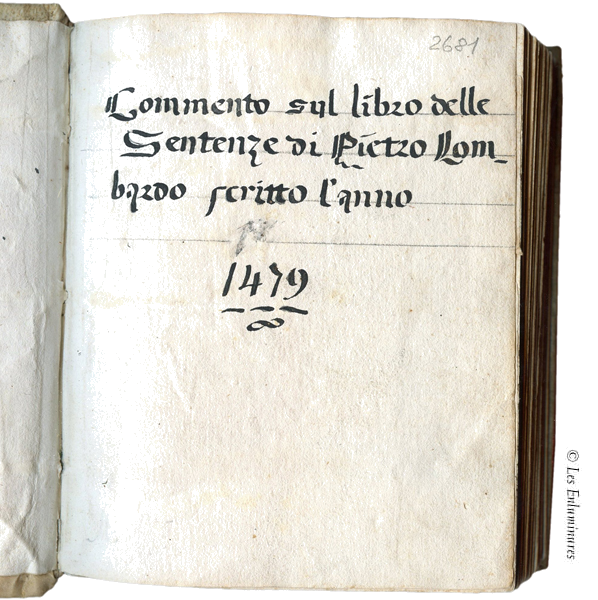 2681
Commento sul libro delle
Sentenze di Pietro Lom-
bardo scritto l'anno
1479
© Les Enluminures